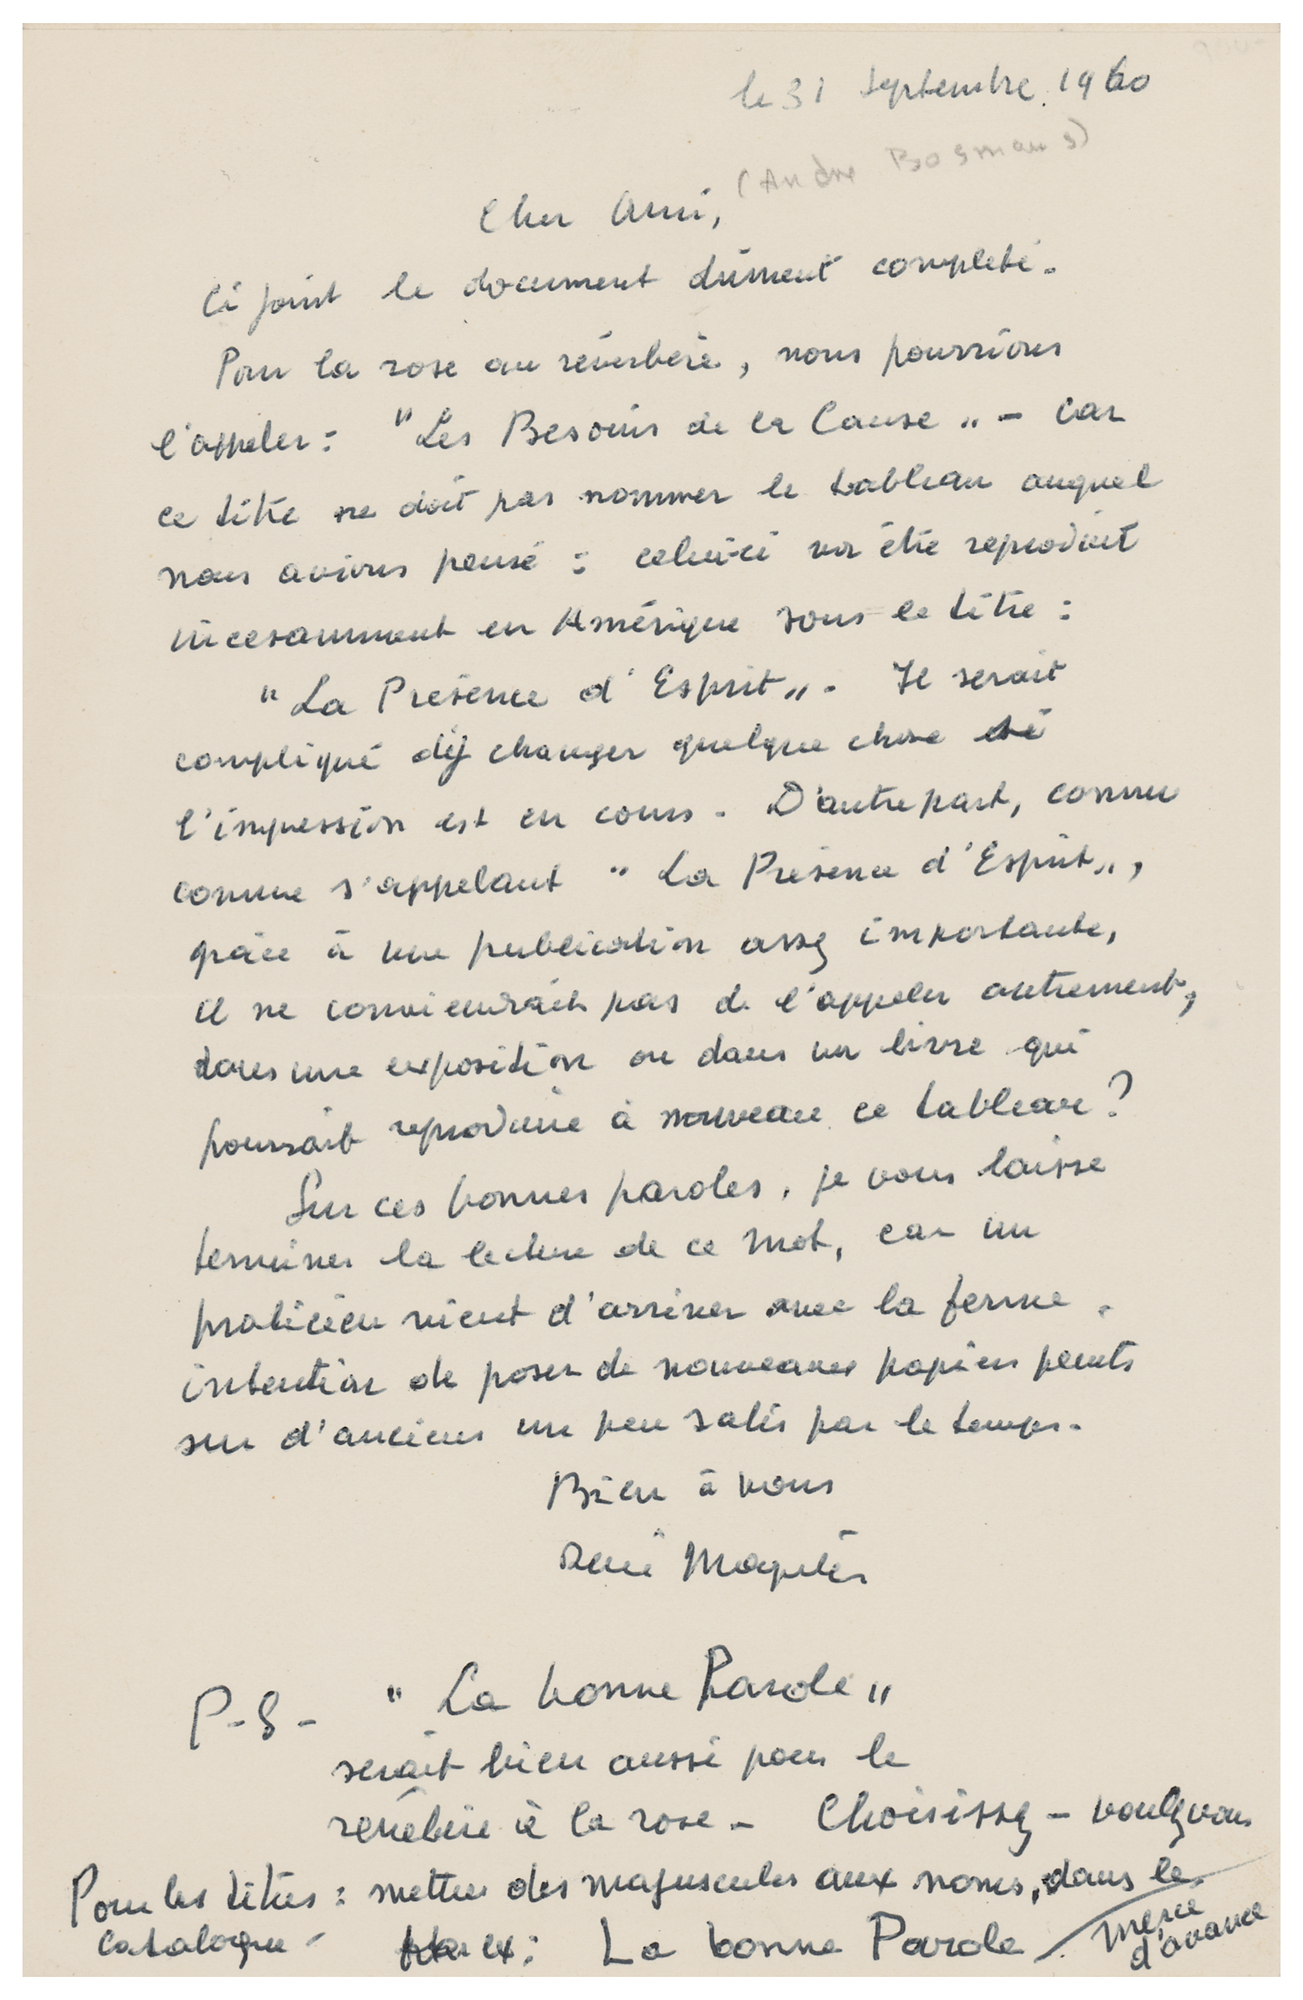 le 31 Septembre 1960
(Andre Bosmans)
Cher Ami,
Ci joint le document dûment complété.
Pour la rose au réverbère, nous pourrions
l'appeler : "Les Besoins de la Cause„ - car
ce titre ne doit pas nommer le tableau auquel
nous avions pensé : celui-ci va être reproduit
incesamment en Amérique sous le titre :
"La Présence d'Esprit„. Il serait
compliqué d'y changer quelque chose si
l'impression est en cours. D'autre part, connu
comme s'appelant "La Présence d'Esprit„,
grâce à une publication assez importante,
il ne conviendrait pas de l'appeler autrement,
dans une exposition ou dans un livre qui
pourrait reproduire à nouveau ce tableau ?
Sur ces bonnes paroles, je vous laisse
terminer la lecture de ce mot, car un
praticien vient d'arriver avec la ferme
intention de poser de nouveaux papiers peints
sur d'anciens un peu salis par le temps.
Bien à vous
René Magritte
P-S- "La bonne Parole„
serait bien aussi pour le
réverbère à la rose - Choisissez - voulez vous
Pour les titres : mettre des majuscules aux noms, dans le
catalogue - ex : La bonne Parole
merci
d'avance